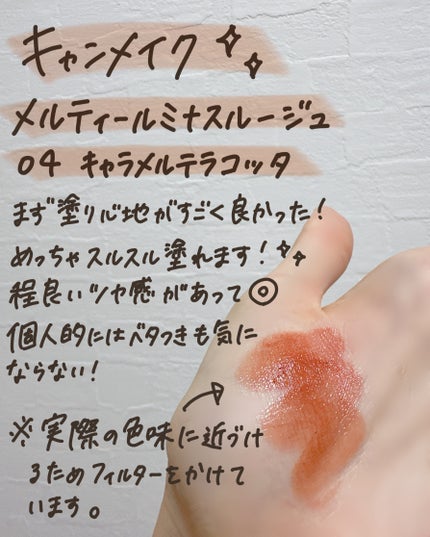 キャンメイク
メルティールミナスルージュ
04 キャラメルテラコッタ
まず塗り心地がすごく良かった！
めっちゃスルスル塗れます！
程良いツヤ感があって◎
個人的にはベタつきも気に
ならない！
※実際の色味に近づけ
るためフィルターをかけて
います。